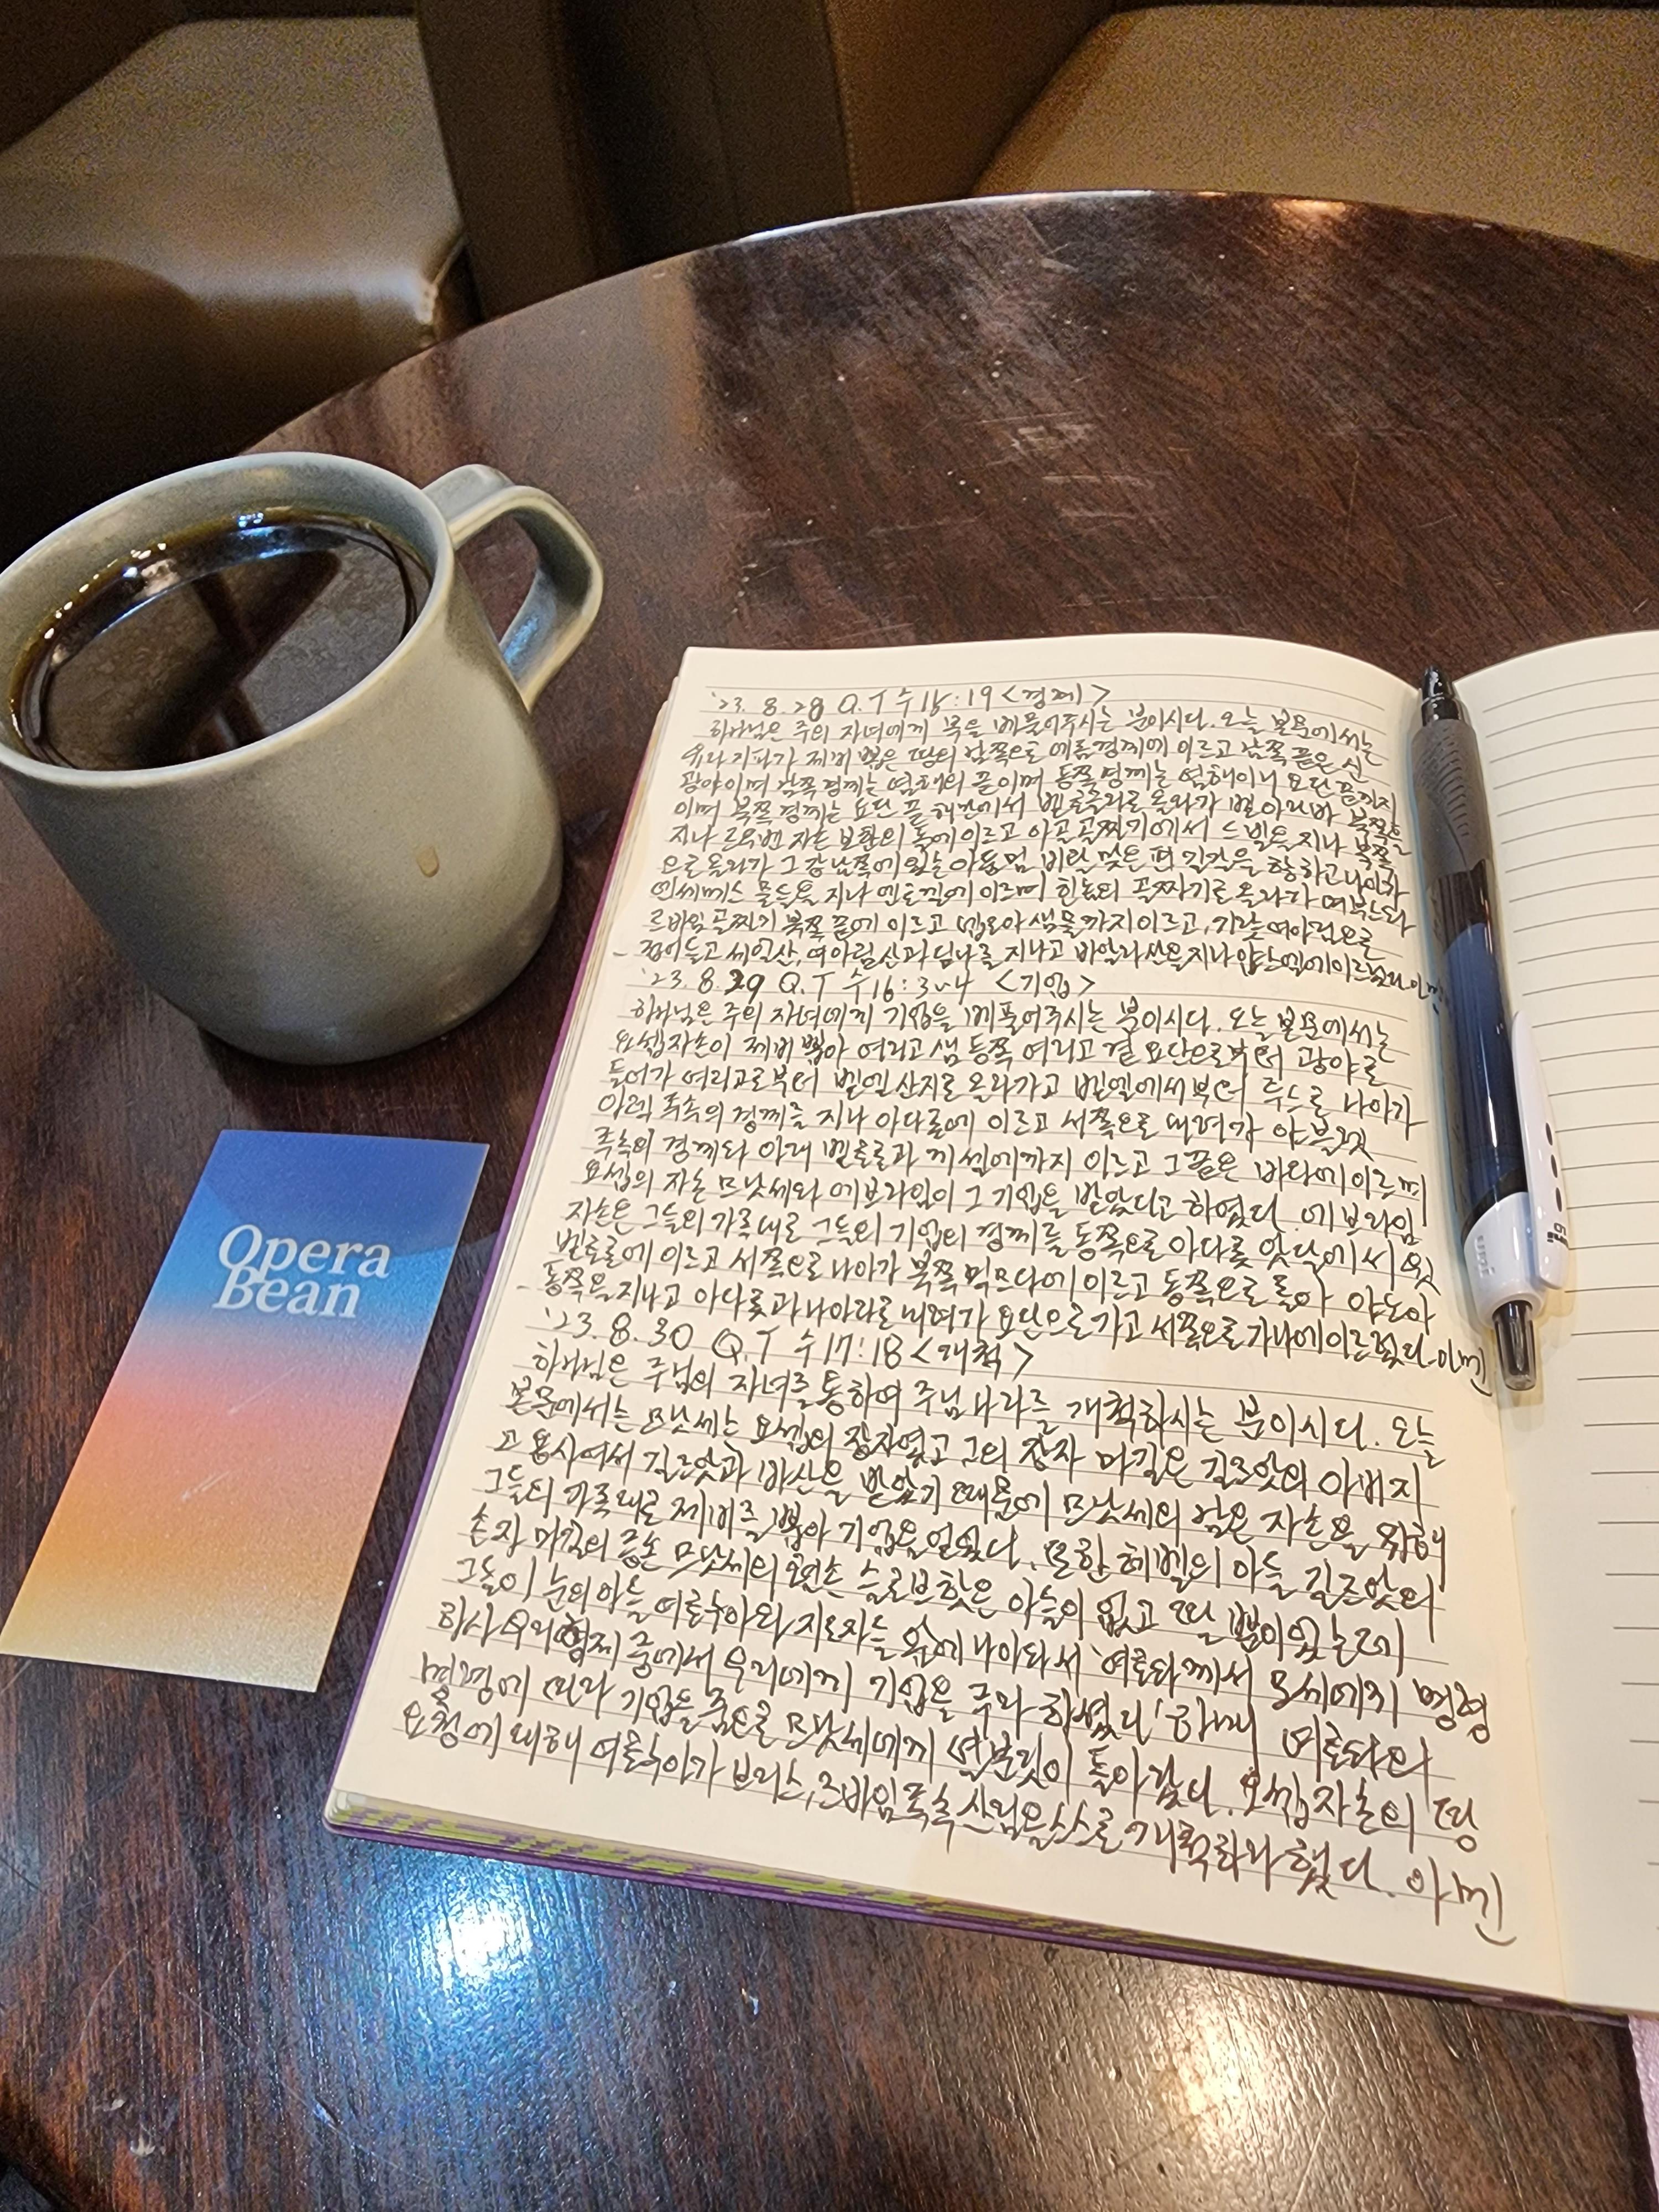 '23. 8. 28 Q.T 수15:19 <경계>
하나님은 주의 자녀에게 복을 베풀어주시는 분이시다. 오늘 본문에서는
유다 지파가 제비 뽑은 땅의 남쪽으로 에돔경계에 이르고 남쪽 끝은 신
광야이며 남쪽 경계는 염해의 끝이며 동쪽 경계는 염해이니 요단 끝까지
이며 북쪽 경계는 요단 끝 해만에서 벧호글라로 올라가 벧 아라바 북쪽을
지나 르우벤 자손 보한의 돌에 이르고 아골 골짜기에서 드빌을 지나 북쪽
으로 올라가 그 강 남쪽에 있는 아둠밈 비탈 맞은 편 길갈을 향하고 나아가
엔세메스 물들을 지나 엔로겔에 이르며 힌놈의 골짜기로 올라가 여부스
르바임 골짜기 북쪽 끝에 이르고 넵도아 샘물까지 이르고, 기럇 여아림으로
접어들고 세일산, 여아림 산과 딤나를 지나고 바알라 산을 지나 얍느엘에 이르렀다. 아멘
'23. 8. 29 Q.T 수16:3~4 <기업>
하나님은 주의 자녀에게 기업을 베풀어주시는 분이시다. 오늘 본문에서는
요셉자손이 제비 뽑아 여리고 샘 동쪽 여리고 곁 요단으로부터 광야로
들어가 여리고로부터 벧엘 산지로 올라가고 벧엘에서부터 루스로 나아가
아렉 족속의 경계를 지나 아다롯에 이르고 서쪽으로 내려가 야블렛
족속의 경계와 아래 벧호론과 게셀에까지 이르고 그 끝은 바다에 이르며
요셉의 자손 므낫세와 에브라임이 그 기업을 받았다고 하였다. 에브라임
자손은 그들의 가족대로 그들의 기업의 경계를 동쪽으로 아다롯 앗달에서 윗
벧호론에 이르고 서쪽으로 나아가 북쪽 믹므다에 이르고 동쪽으로 돌아 야노아
동쪽을 지나고 아다롯과 나아라로 내려가 요단으로 가고 서쪽으로 가나에 이르렀다. 아멘
'23. 8. 30 Q.T 수17:18 <개척>
하나님은 주님의 자녀를 통하여 주님 나라를 개척하시는 분이시다. 오늘
본문에서는 므낫세는 요셉의 장자였고 그의 장자 마길은 길르앗의 아버지
고 용사여서 길르앗과 바산을 받았기 때문에 므낫세의 남은 자손을 위해
그들의 가족대로 제비를 뽑아 기업을 얻었다. 또한 헤벨의 아들 길르앗의
손자 마길의 증손 므낫세의 현손 슬로브핫은 아들이 없고 딸 뿐이있는데
그들이 눈의 아들 여호수아와 지도자들 앞에 나아와서 '여호와께서 모세에게 명령
하사 우리 형제 중에서 우리에게 기업을 주라 하였다' 하매 여호와의
명령에 따라 기업을 줌으로 므낫세에게 열 분깃이 돌아갔다. 요셉자손의 땅
요청에 대해 여호수아가 브리스, 르바임 족속 산림을 스스로 개척하라 했다. 아멘
Opera
Bean
uni